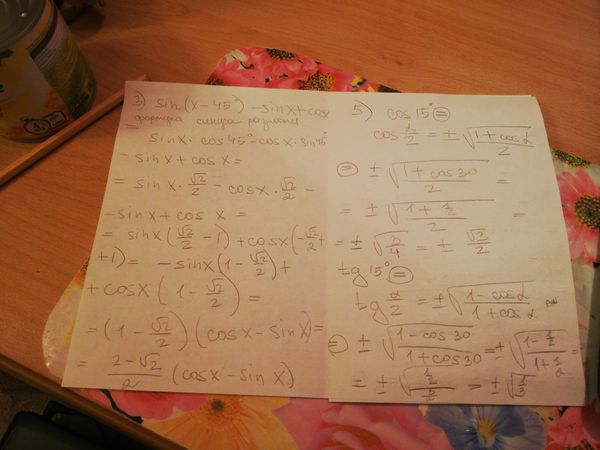 3) sin(x-45°) -sinx+cosx
= формула синуса разности
sinx·cos45°-cosx·sin45°
-sinx+cosx=
= sinx·√2/2 - cosx·√2/2 -
-sinx+cos x =
= sinx(√2/2 -1) +cosx(-√2/2+
+1)= -sinx(1-√2/2)+
+cosx(1-√2/2)=
=(1-√2/2)(cosx-sinx)=
= (2-√2)/2 (cosx-sinx)
5) cos15°=
cos α/2 = ±√((1+cosα)/2)
= ±√((1+cos30)/2) =
= ±√((1+1/2)/2) =
= ±√(3/4) = ±√2/2
tg15°=
tg α/2 = ±√((1-cosα)/(1+cosα))
= ±√((1-cos30)/(1+cos30)) = ±√((1-1/2)/(1+1/2)) =
= ±√((1/2)/(3/2)) = ±√(1/3)